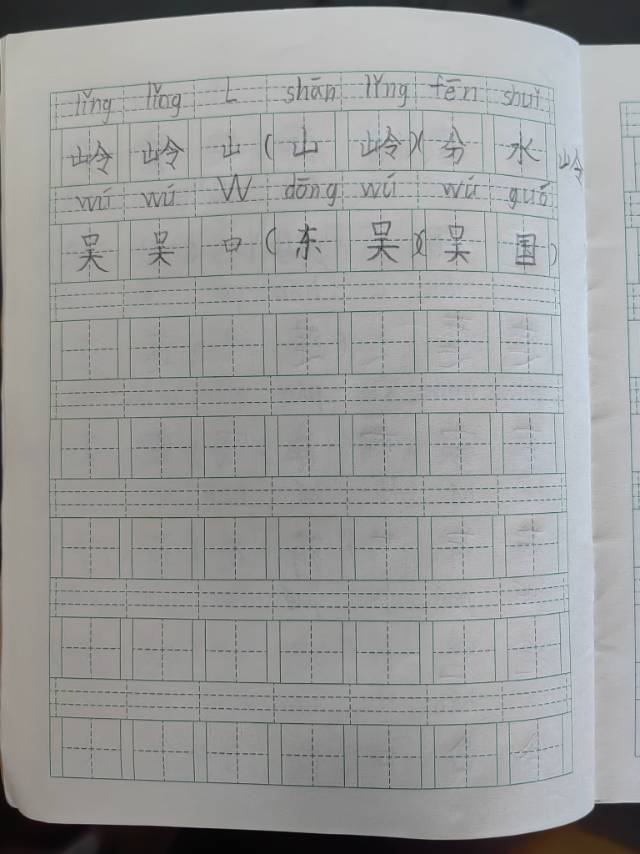 lǐng lǐng L shān lǐng fēn shuǐ
岭 岭 山 ( 山 岭 )( 分 水 岭
wú wú W dōng wú wú guó
吴 吴 口 ( 东 吴 )( 吴 国 )